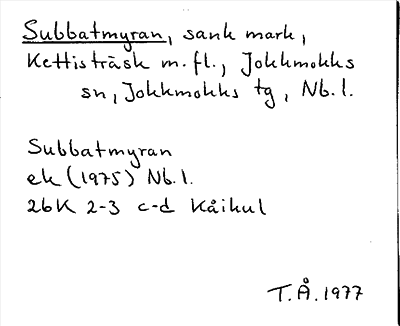 Subbatmyran, sank mark,
Kettisträsk m.fl., Jokkmokks
sn, Jokkmokks tg, Nb.l.
Subbatmyran
ek (1975) Nb.l.
26K 2-3 c-d Kåikul
T.Å.1977